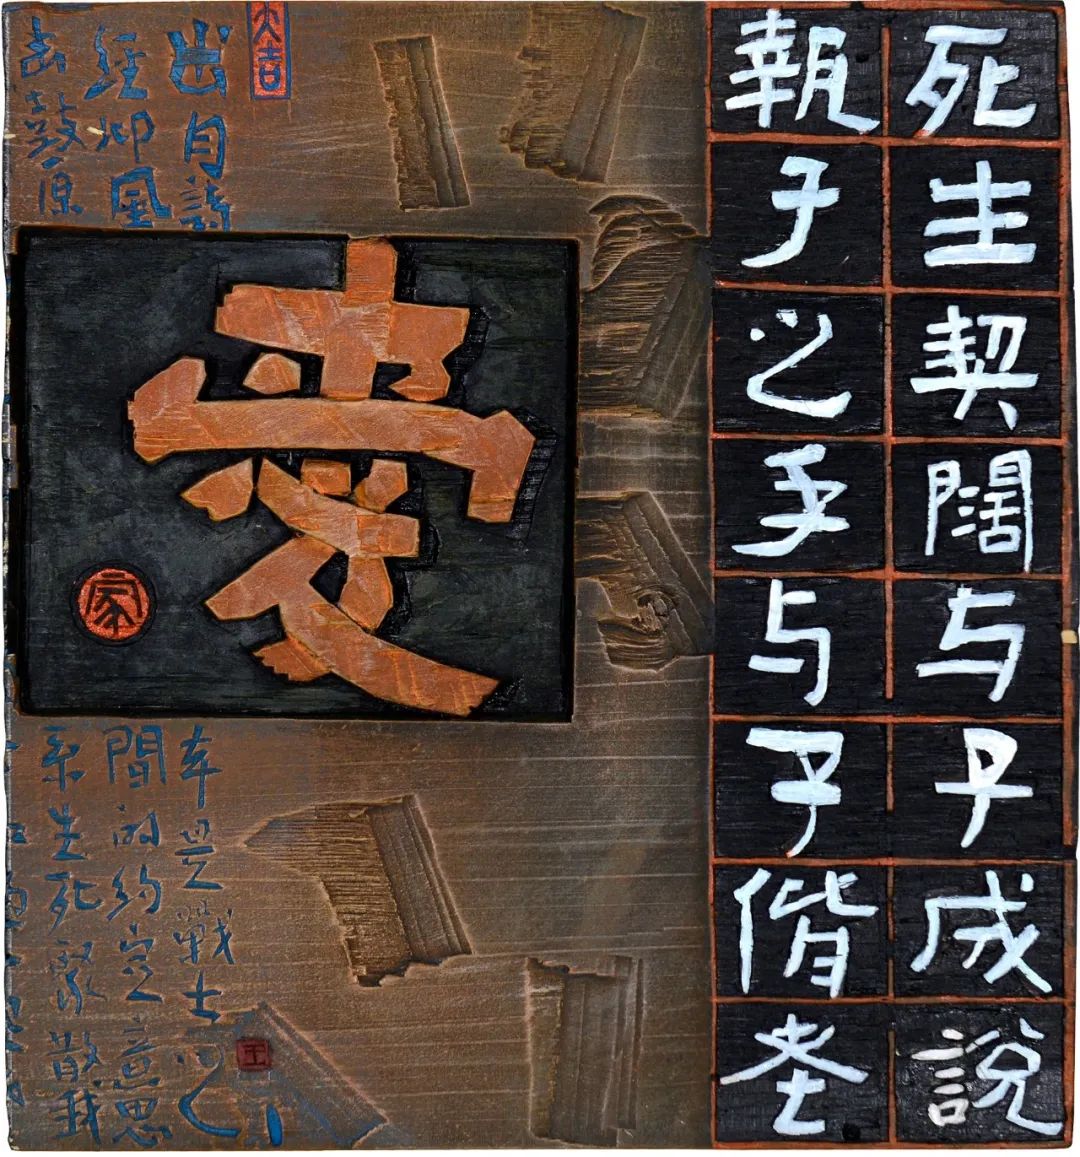 死生契闊与子成說
執子之手与子偕老
大吉
出自詩
經邶風
击鼓原
愛
家
本是戰士
間的約定意思
系生死聚散我
王